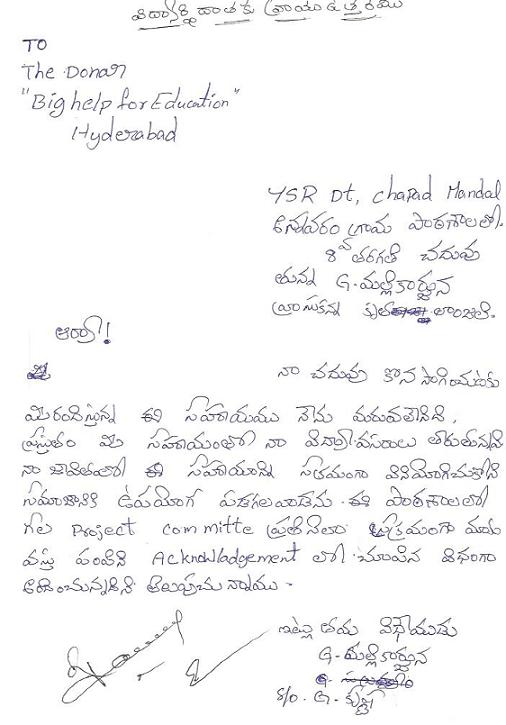 విద్యార్థి దాతకు వ్రాయు ఉత్తరము
TO
The Donar
"Big help for Education"
Hyderabad
YSR Dt, Chapad Mandal
అన్నవరం గ్రామ పాఠశాలలో.
8వ తరగతి చదువు
తున్న G. మల్లికార్జున
వ్రాసుకున్న కృతజ్ఞతాంజలి.
ఆర్యా!
నా చదువు కొనసాగించుటకు
మీరందిస్తున్న ఈ సహాయము నేను మరువలేనిది,
ప్రస్తుతం మీ సహాయంతో నా విద్యావసరాలు తీరుతున్నవి
నా జీవితంలో ఈ సహాయాన్ని సక్రమంగా వినియోగించుకొని
సమాజానికి ఉపయోగ పడగలవాడను. ఈ పాఠశాలలో
గల Project committe ప్రతినెలా సక్రమంగా మాకు
వస్తు పంపిణి Acknowladgement లో చూపిన విధంగా
అందించుచున్నదని తెలుపుచున్నాము.
ఇట్లు తమ విధేయుడు
G. మల్లికార్జున
S/o. G. కృష్ణ